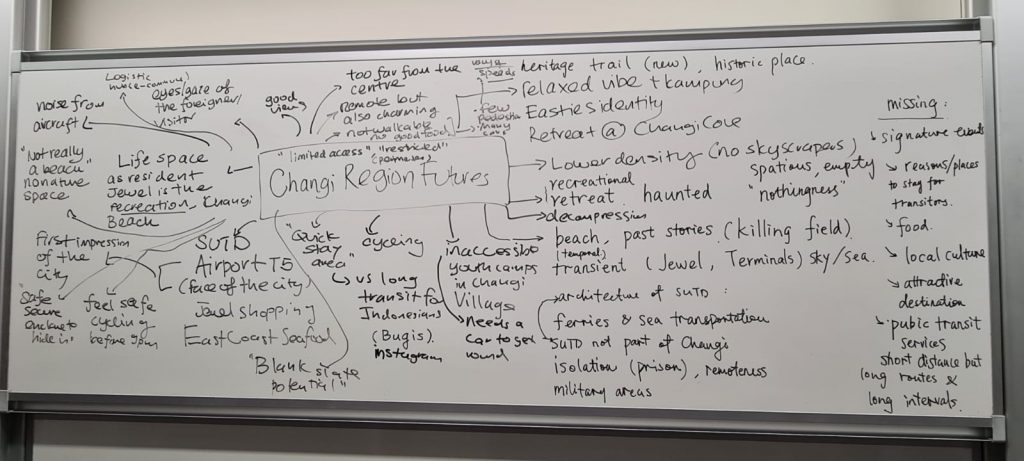 Logistic
eyes/gate of
the foreigner/
visitor
noise from
aircraft
"Not really
a beach"
no nature
space
Life space
as resident
Jewel is the
recreation, Changi
Beach
First impression
of the
city
"Safe
secure
enclave to
hide in"
feel safe
cycling
before 7am
good
views
too far from the
centre
Remote but
also charming
not walkable
no good food
speeds
few
many
cars
"limited access" "restricted"
(perimeter)
Changi Region futures
SUTD
Airport T5
(face of the city)
Jewel shopping
East Coast Seafood
"Blank slate
potential"
"Quick
stay
area"
vs long
transit for
Indonesians
(Bugis).
instagram
cycling
inaccessible
youth camps
in changi
Village
Needs a
car to get
round
heritage trail (new), historic place.
relaxed vibe + kampung
Easties identity
Retreat @ Changi Cove
Lower density (no skyscrapers)
spatious, empty
"nothingness"
recreational
retreat haunted
decompression
beach, past stories (killing field).
(temporal)
transient (Jewel, Terminals) sky/sea.
architecture of SUTD:
ferries & sea transportation
SUTD not part of Changi
isolation (prison), remoteness
military areas
missing:
signature events
reasons/places
to stay for
transitors.
food.
local culture
attractive
destination
pubic transit
services
short distance but
long routes &
long intervals.